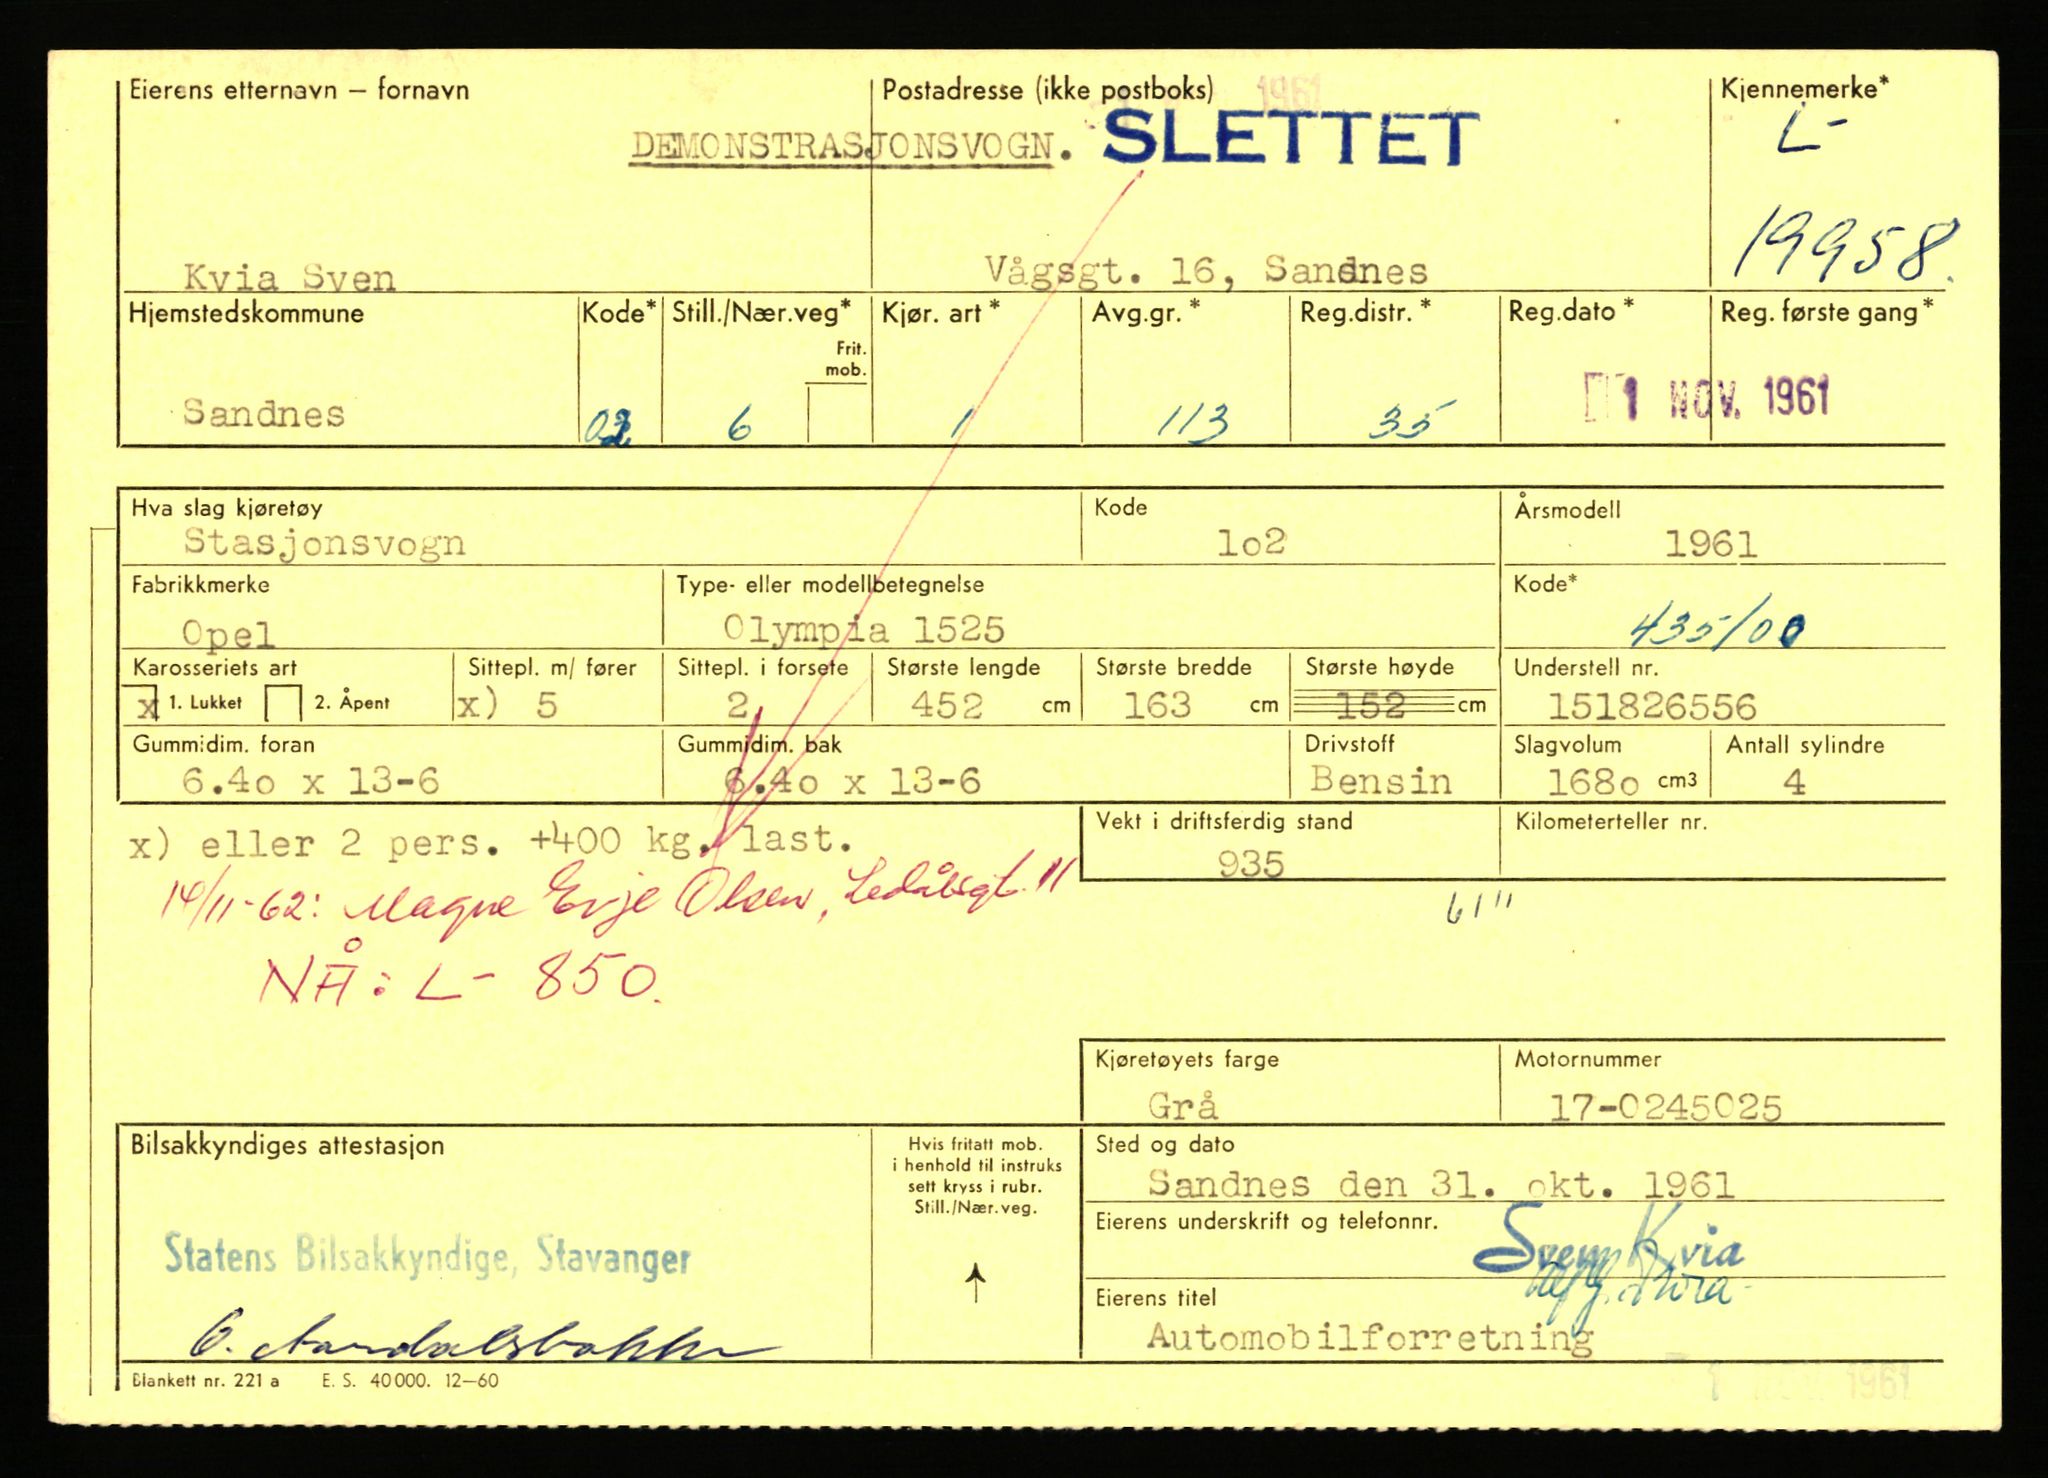 Eierens etternavn – fornavn
Postadresse (ikke postboks)
Kjennemerke*
1961
DEMONSTRASJONSVOGN.
SLETTET
L-
19958.
Kvia Sven
Vågsgt. 16, Sandnes
Hjemstedskommune
Kode*
Still./Nær.veg*
Frit. mob.
Kjør. art*
Avg.gr.*
Reg.distr.*
Reg.dato*
Reg. første gang*
Sandnes
6
1
113
35
1 NOV. 1961
Hva slag kjøretøy
Kode
Årsmodell
Stasjonsvogn
1o2
1961
Fabrikkmerke
Type- eller modellbetegnelse
Kode*
Opel
Olympia 1525
435/00
Karosseriets art
Sittepl. m/ fører
Sittepl. i forsete
Største lengde
Største bredde
Største høyde
Understell nr.
x 1. Lukket
2. Åpent
x) 5
2
452 cm
163 cm
152 cm
151826556
Gummidim. foran
Gummidim. bak
Drivstoff
Slagvolum
Antall sylindre
6.4o x 13-6
6.4o x 13-6
Bensin
168o cm3
4
x) eller 2 pers. +400 kg. last.
Vekt i driftsferdig stand
Kilometerteller nr.
935
14/11-62: Magne Evje Olsen, Ledålsgt. 11
61"
NÅ: L- 850.
Kjøretøyets farge
Motornummer
Grå
17-0245025
Bilsakkyndiges attestasjon
Hvis fritatt mob.
i henhold til instruks
sett kryss i rubr.
Still./Nær.veg.
Sted og dato
Sandnes den 31. okt. 1961
Eierens underskrift og telefonnr.
Statens Bilsakkyndige, Stavanger
Sven Kvia
Eierens titel
Automobilforretning
Blankett nr. 221 a E. S. 40 000. 12–60
1 NOV 1961